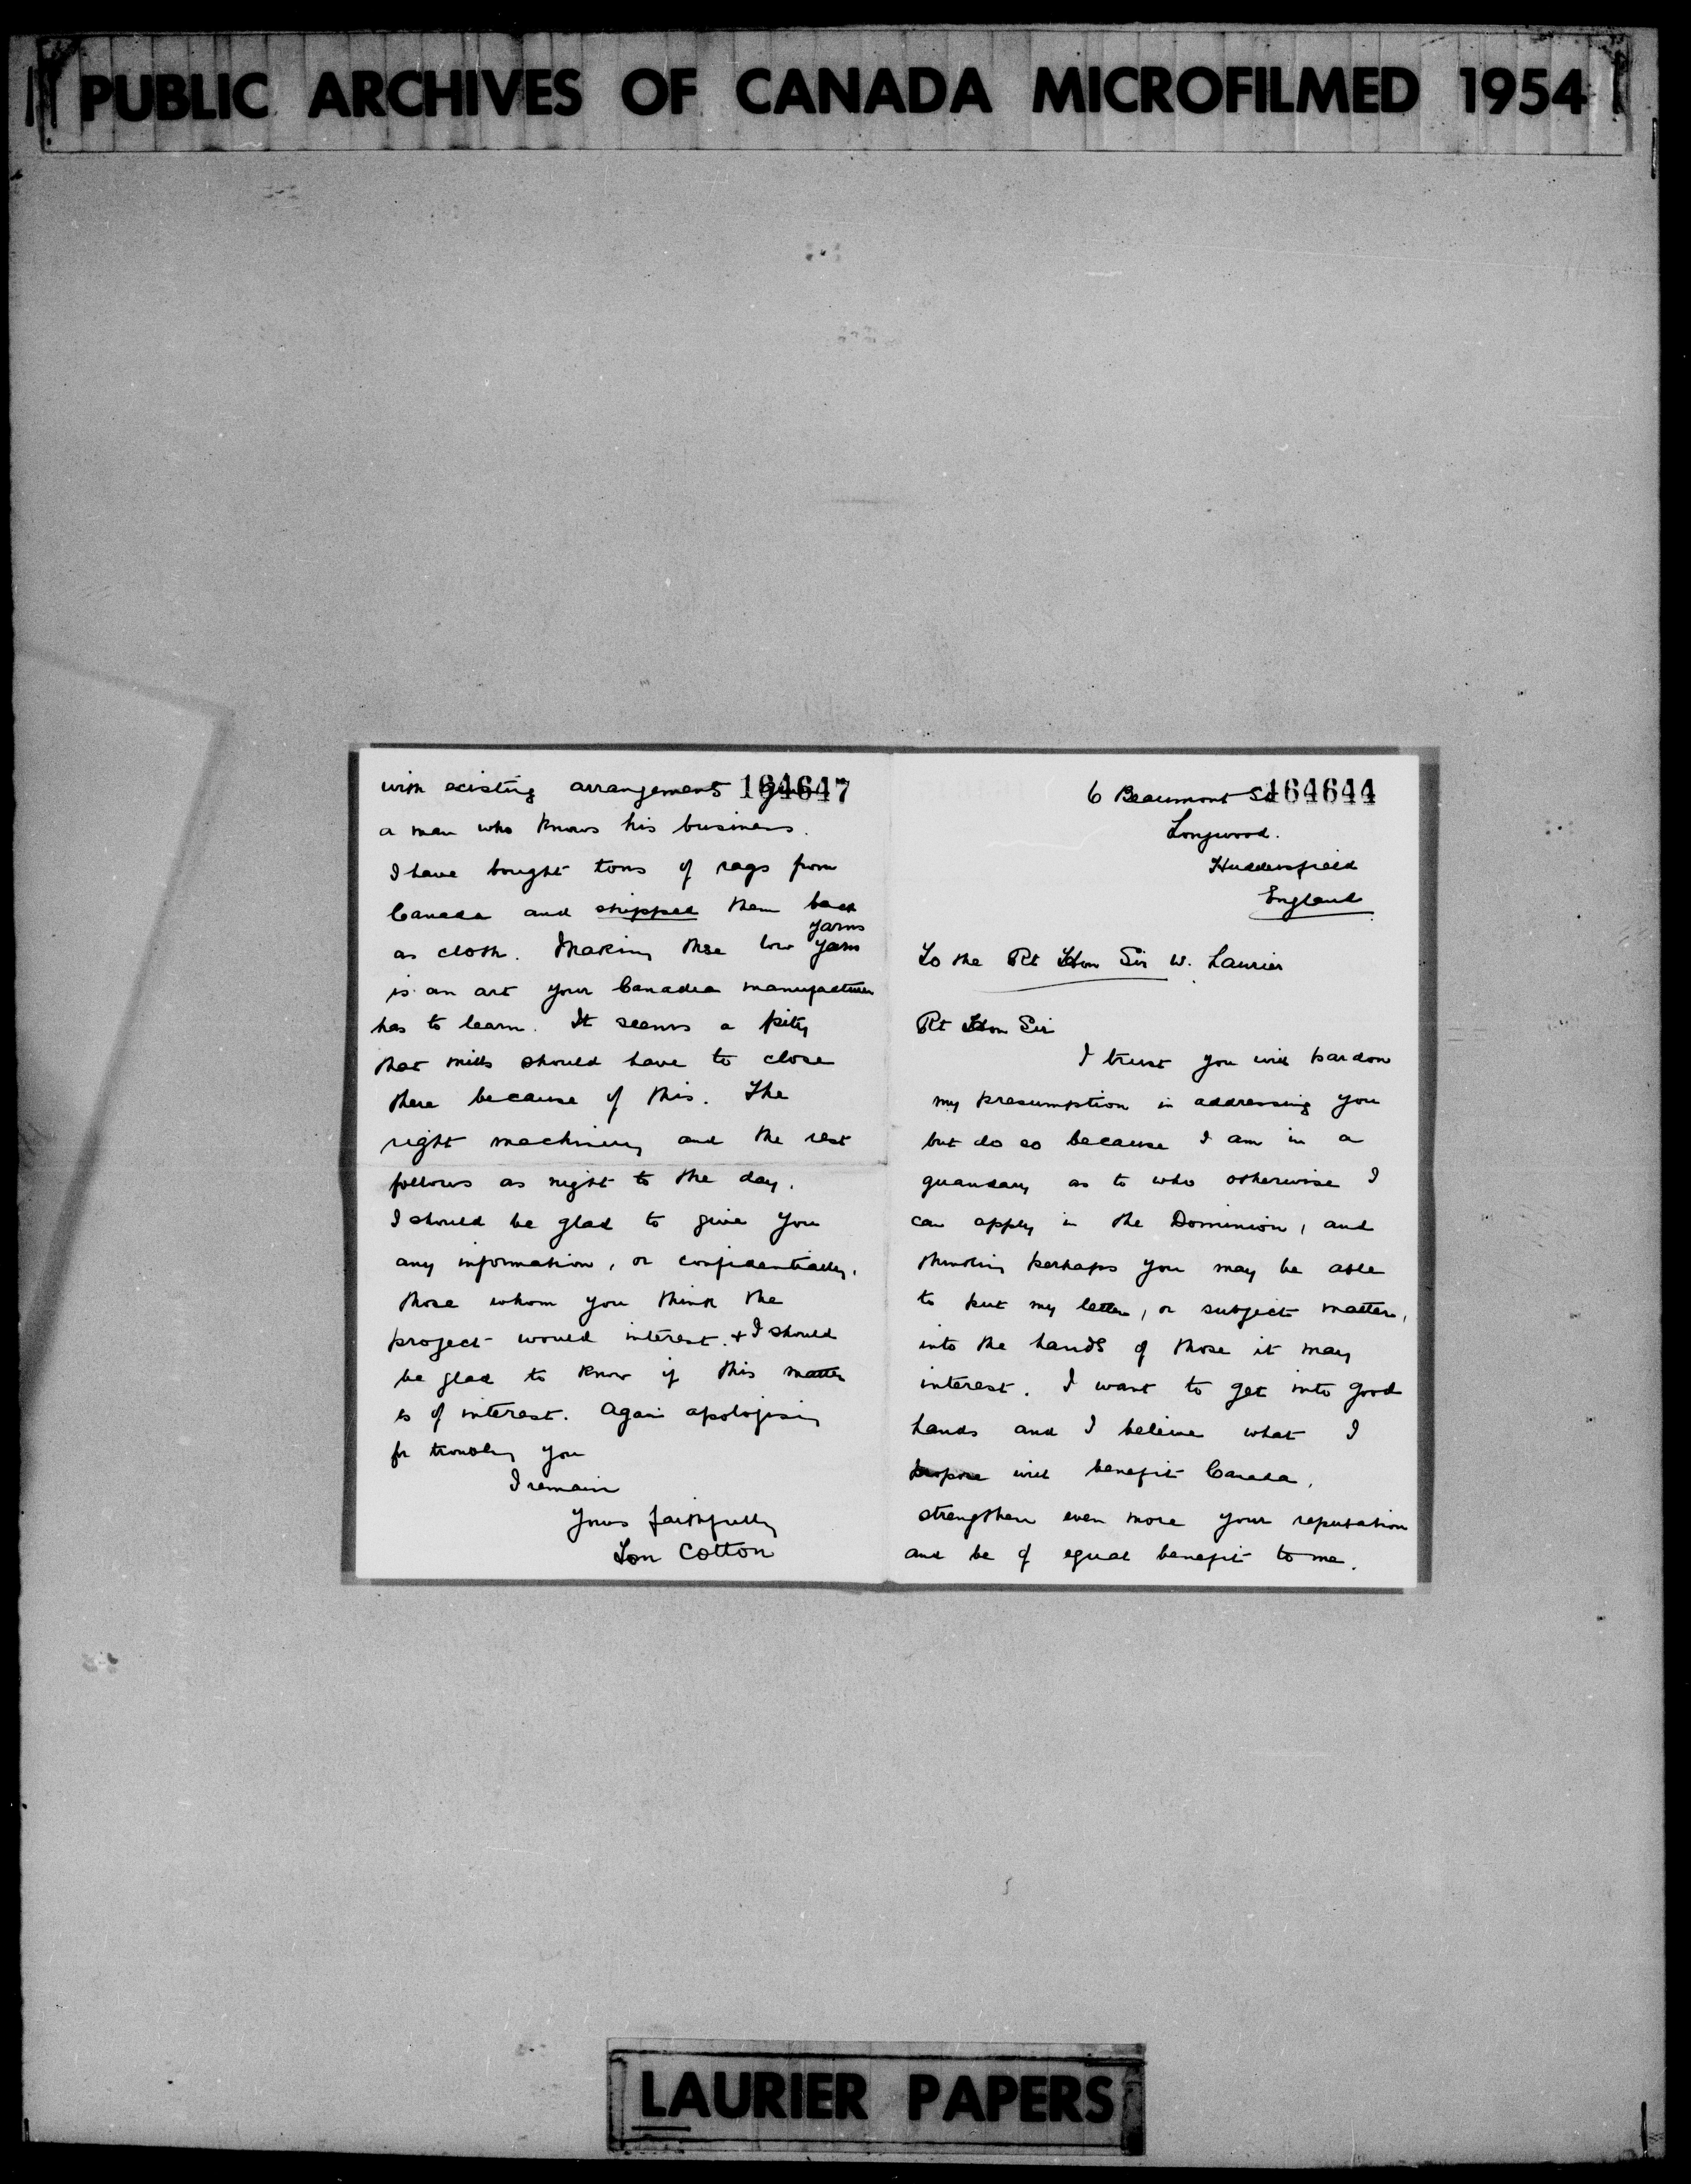 PUBLIC ARCHIVES OF CANADA MICROFILMED 1954
with existing arrangements 164647
a man who knows his business.
I have bought tons of rags from
Canada and shipped them back
yarns
as cloth. Making these low yarns
is an art your Canadian manufacturer
has to learn. It seems a pity
that mills should have to close
there because of this. The
right machinery and the rest
follows as night to the day.
I should be glad to give you
any information, or confidentially,
those whom you think the
project would interest. & I should
be glad to know if this matter
is of interest. Again apologising
for troubling you
I remain
Yours faithfully
Tom Cotton
6 Beaumont St 164644
Longwood.
Huddersfield
England
To the Rt Hon Sir W. Laurier
Rt Hon Sir
I trust you will pardon
my presumption in addressing you
but do so because I am in a
quandary as to who otherwise I
can apply in the Dominion, and
thinking perhaps you may be able
to put my letter, or subject matter,
into the hands of those it may
interest. I want to get into good
hands and I believe what I
propose will benefit Canada,
strengthen even more your reputation
and be of equal benefit to me.
LAURIER PAPERS